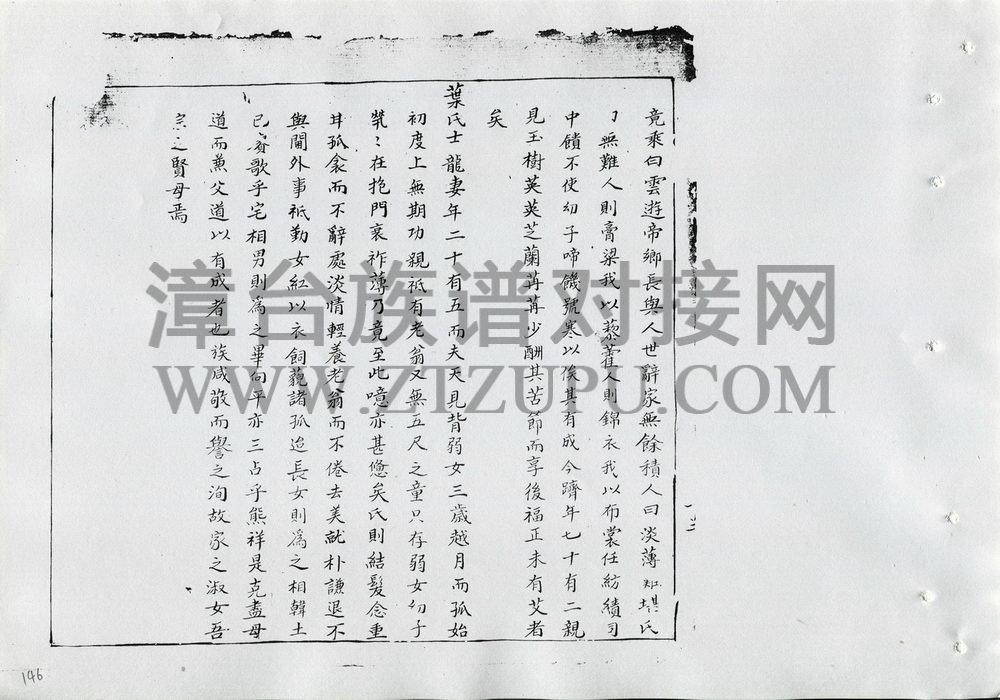 竟乘白雲遊帝鄉長與人世辭家無餘積人曰淡薄難堪氏
曰無難人則膏梁我以藜藿人則錦衣我以布裳任紡績司
中饋不使幼子啼饑號寒以俟其有成今躋年七十有二親
見玉樹英英芝蘭苒苒少酬其苦節而享後福正未有艾者
矣
葉氏士龍妻年二十有五而夫天見背弱女三歲越月而孤始
初度上無期功親祇有老翁又無五尺之童只存弱女幼子
煢〻在抱門衰祚薄乃竟至此噫亦甚憊矣氏則結髮念重
井孤衾而不辭處淡情輕養老翁而不倦去美就朴謙退不
與閫外事祇勤女紅以衣飼藐諸孤迨長女則為之相韓土
已賡歌乎宅相男則為之畢向平亦三占乎熊祥是克盡母
道而兼父道以有成者也族咸敬而譽之洵故家之淑女吾
宗之賢母焉
漳台族谱对接网
WWW.ZTZUPU.COM
146